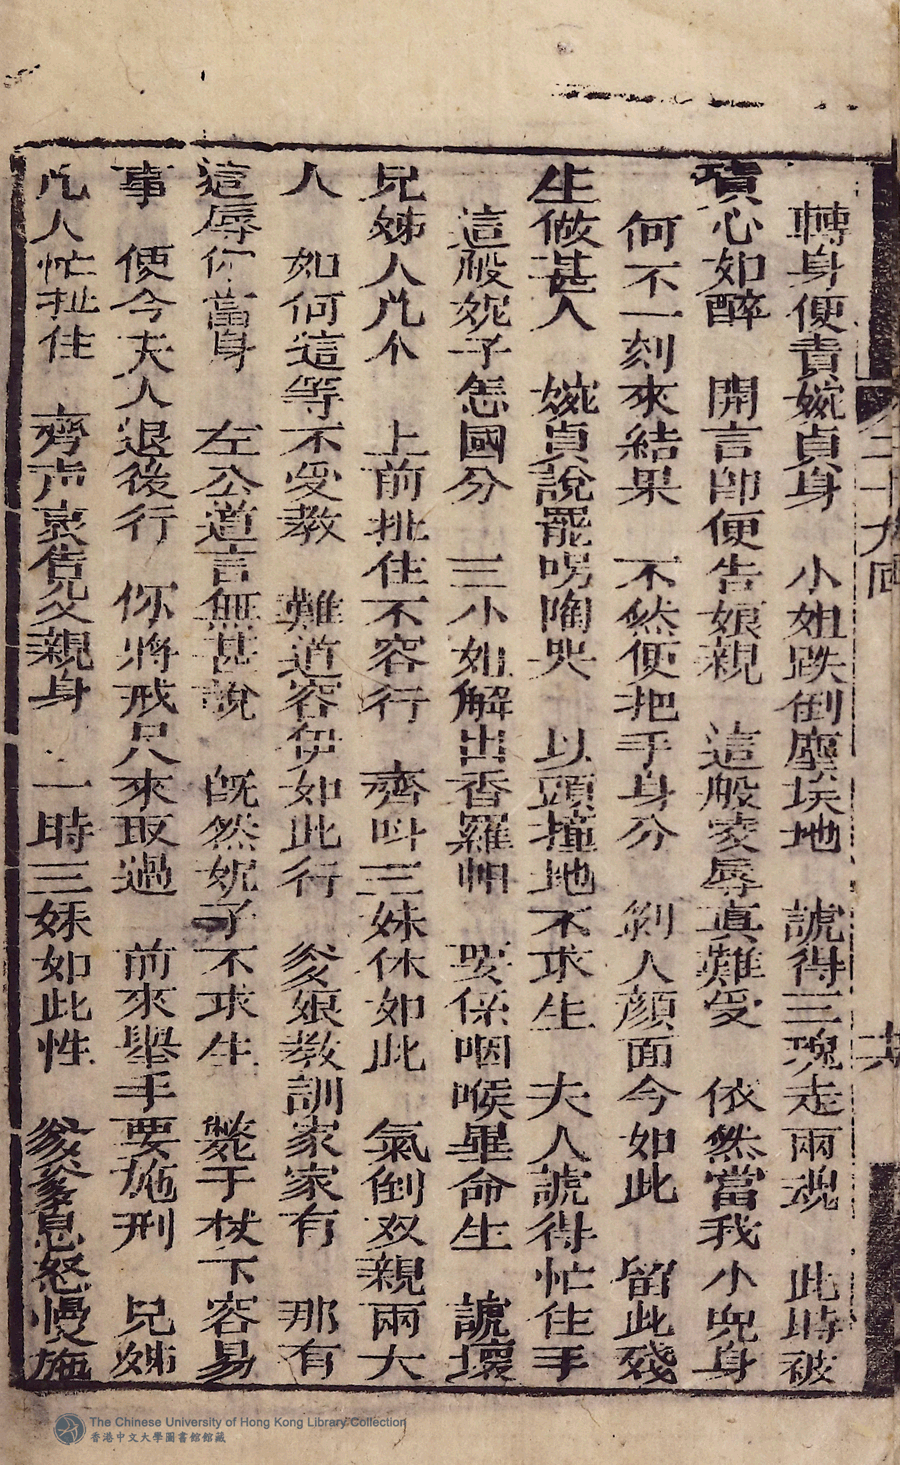 二十九回
共
轉身便責婉貞身　小姐跌倒塵埃地　諕得三魂走兩魂　此時被
責心如醉　開言即便告娘親　這般凌辱真難受　依然當我小兒身
何不一刻來結果　不然便把手身分　剝人顔面今如此　留此殘
生做甚人　婉貞說罷咷啕哭　以頭撞地不求生　夫人諕得忙住手
這般妮子怎國分　三小姐解出香羅帕　要係咽喉畢命生　諕壞
兄姊人凢个　上前扯住不容行　齊呌三妹休如此　氣倒双親兩大
人　如何這等不受教　難道容伊如此行　爹娘教訓家家有　那有
這辱你當身　左公道言無甚說　既然妮子不求生　斃于杖下容易
事　便令夫人退後行　你將戒尺來取過　前來舉手要施刑　兄姊
凢人忙扯住　齊声哀告父親身　一時三妹如此性　爹爹息怒慢施
The Chinese University of Hong Kong Library Collection
香港中文大學圖書館館藏